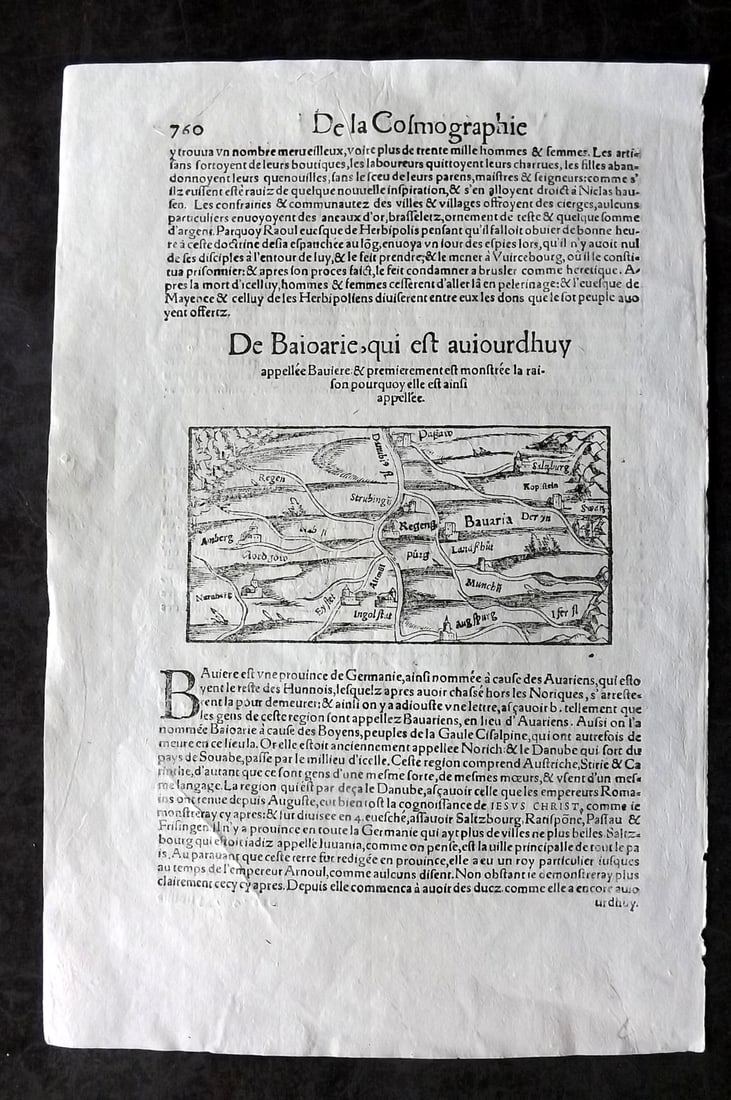 760 De la Cosmographie
y trouua vn nombre merueilleux, voire plus de trente mille hommes & femmes. Les arti-
sans sortoyent de leurs boutiques, les laboureurs quittoyent leurs charrues, les filles aban-
donnoyent leurs quenouilles, sans le sceu de leurs parens, maistres & seigneurs: comme s'
ilz eussent esté rauiz de quelque nouuelle inspiration, & s'en alloyent droict à Niclas hau-
sen. Les confrairies & communautez des villes & villages offroyent des cierges, aulcuns
particuliers enuoyoyent des anceaux d'or, brasseletz, ornement de teste & quelque somme
d'argent. Parquoy Raoul euesque de Herbipolis pensant qu'il falloit obuier de bonne heu-
re à ceste doctrine desia espanchee au lõg, enuoya vn iour des espies lors, qu'il n'y auoit nul
de ses disciples à l'entour de luy, & le feit prendre; & le mener à Vuircebourg, où il le consti-
tua prisonnier: & apres son proces faict, le feit condamner a brusler comme heretique. A-
pres la mort d'icelluy, hommes & femmes cesserent d'aller là en pelerinage: & l'euesque de
Mayence & celluy de les Herbipoliens diuiserent entre eux les dons que le sot peuple auo
yent offertz.
De Baioarie, qui est auiourdhuy
appellée Bauiere: & premierement est monstrée la rai-
son pourquoy elle est ainsi
appellée.
Passaw
Danubiꝰ fl.
Saltzburg
Regen
Kopfstein
Strubingẽ
Swatz
Regens
Bauaria
Der yn
Amberg
Nab fl
purg
Landshůt
Nordgow
Altmül
Munchẽ
Nurnberg
Eystet
Ingolstat
Augspurg
Iser fl
BAuiere est vne prouince de Germanie, ainsi nommée à cause des Auariens, qui esto
yent le reste des Hunnois, lesquelz apres auoir chassé hors les Noriques, s'arreste-
rent la pour demeurer: & ainsi on y a adiousté vne lettre, asçauoir b. tellement que
les gens de ceste region sont appellez Bauariens, en lieu d'Auariens. Aussi on l'a
nommée Baioarie à cause des Boyens, peuples de la Gaule Cisalpine, qui ont autrefois de
meuré en ce lieu la. Or elle estoit anciennement appellee Norich: & le Danube qui sort du
pays de Souabe, passe par le millieu d'icelle. Ceste region comprend Austriche, Stirie & Ca
rinthe, d'autant que ce sont gens d'une mesme sorte, de mesmes mœurs, & vsent d'un mes-
me langage. La region qui est par deça le Danube, asçauoir celle que les empereurs Roma-
ins ont tenue depuis Auguste, eut bien tost la cognoissance de IESVS CHRIST, comme ie
monstreray cy apres: & fut diuisee en 4. euesché, assauoir Saltzbourg, Ranspõne, Passau &
Frisingen. Il n'y a prouince en toute la Germanie qui ayt plus de villes ne plus belles. Saltz-
bourg qui estoit iadiz appellé Iuuania, comme on pense, est la uille principalle de tout le pa
is. Au parauant que ceste terre fut redigée en prouince, elle a eu un roy particulier iusques
au temps de l'empereur Arnoul, comme aulcuns disent. Non obstant ie demonstreray plus
clairement cecy cy apres. Depuis elle commenca à auoir des ducz, comme elle a encore auio
urdhuy.